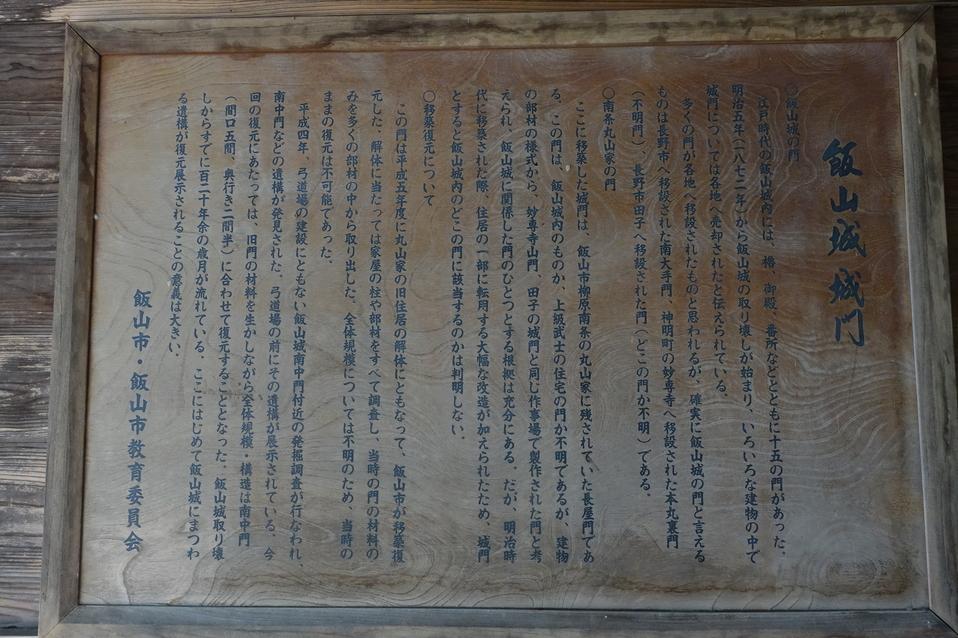 飯山城城門
〇飯山城の門
江戸時代の飯山城内には、櫓、御殿、番所などとともに十五の門があった。
明治五年（一八七二年）から飯山城の取り壊しが始まり、いろいろな建物の中で
城門については各地へ売却されたと伝えられている。
多くの門が各地へ移設されたものと思われるが、確実に飯山城の門と言える
ものは長野市へ移設された南大手門、神明町の妙専寺へ移設された本丸裏門
（不明門）、長野市田子へ移設された門（どこの門か不明）である。
〇南条丸山家の門
ここに移築した城門は、飯山市柳原南条の丸山家に残されていた長屋門であ
る。この門は、飯山城内のものか、上級武士の住宅の門か不明であるが、建物
の部材の様式から、妙専寺山門、田子の城門と同じ作事場で製作された門と考
えられ、飯山城に関係した門のひとつとする根拠は充分にある。だが、明治時
代に移築された際、住居の一部に転用する大幅な改造が加えられたため、城門
とすると飯山城内のどこの門に該当するのかは判明しない。
〇移築復元について
この門は平成五年度に丸山家の旧住居の解体にともなって、飯山市が移築復
元した。解体に当たっては家屋の柱や部材をすべて調査し、当時の門の材料の
みを多くの部材の中から取り出した。全体規模については不明のため、当時の
ままの復元は不可能であった。
平成四年、弓道場の建設にともない飯山城南中門付近の発掘調査が行なわれ、
南中門などの遺構が発見された。弓道場の前にその遺構が展示されている。今
回の復元にあたっては、旧門の材料を生かしながら全体規模・構造は南中門
（間口五間、奥行き二間半）に合わせて復元することとなった。飯山城取り壊
しからすでに百二十年余の歳月が流れている。ここにはじめて飯山城にまつわ
る遺構が復元展示されることの意義は大きい。
飯山市・飯山市教育委員会